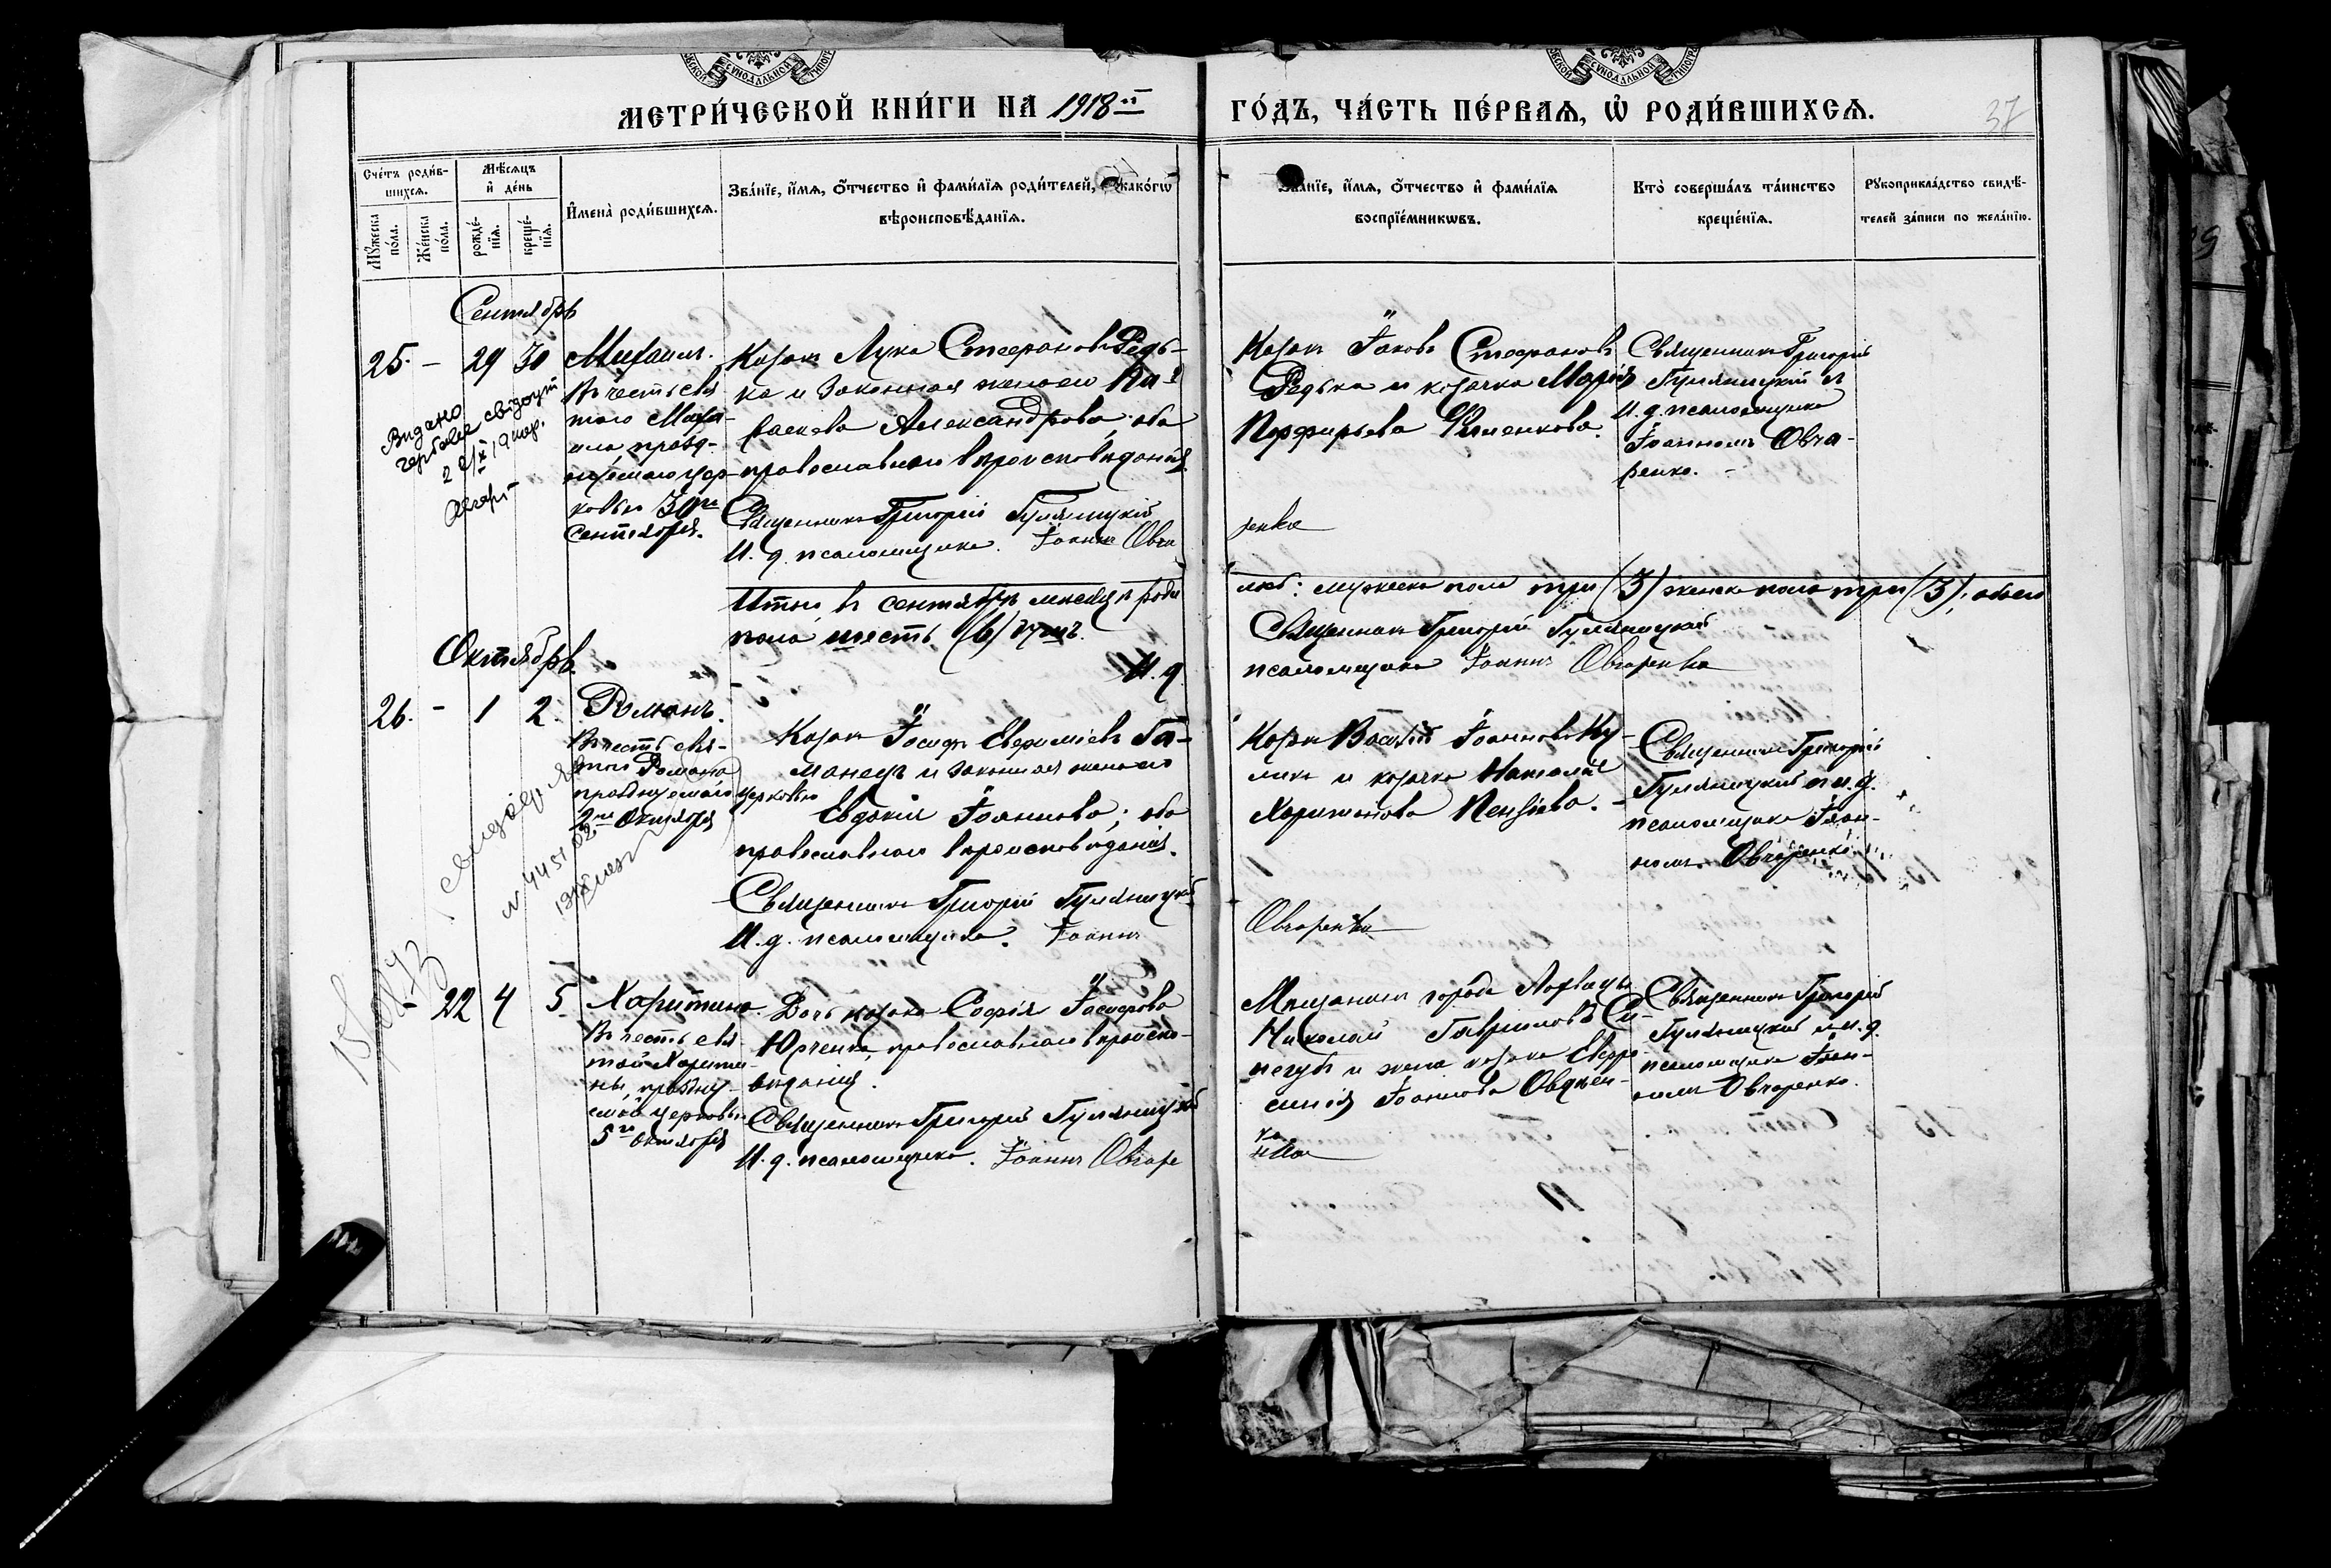 МЕТРИ́ЧЕСКОЙ КНИ́ГИ НА 1918й ГО́ДЪ, ЧА́СТЬ ПЕ́РВАЯ, Ѡ҆ РОДИ́ВШИХСЯ.
37
Сче́тъ роди́в-
шихся.
Му́жеска
по́ла.
Же́нска
по́ла.
Мѣ́сяцъ
и҆ де́нь
рожде́-
нїя.
креще́-
нїя.
И҆мена̀ роди́вшихся.
Зва́нїе, и҆́мя, ѻ҆́тчество и҆ фами́лїя роди́телей, и҆ како́гѡ
вѣроисповѣ́данїя.
Зва́нїе, и҆́мя, ѻ҆́тчество и҆ фами́лїя
воспрїе́мникѡвъ.
Кто̀ соверша́лъ та́инство
креще́нїя.
Рꙋкоприкла́дство свидѣ́-
телей за́писи по жела́нїю.
Сентябрь
25. - 29 30
Михаилъ.
Въ честь свя-
того Миха-
ила, празд-
нуемаго цер-
ковью 30го
Сентября.
Видано
Козакъ Лука Стефановъ Редь-
ка и законная жена его Па-
раскева Александрова; оба
православнаго вѣроисповѣданія.
Священникъ Григорій Гуляницкій
И. д. псаломщика. Іоаннъ Овча
Козакъ Іаковъ Стефановъ
Редька и козачка Марія
Порфирьева Филенкова.
ренко
Священникъ Григорій
Гуляницкій и
и.д. псаломщика
Іоанномъ Овча-
ренко.
Итого въ сентябрѣ мѣсяцѣ роди
лось: мужеска пола три (3) женска пола три (3); обоего
пола шесть (6) душъ.
Священникъ Григорій Гуляницкій
И. д.
псаломщика Іоаннъ Овчаренко
Октябрь
26. - 1 2.
Романъ.
Въ честь свя-
того Романа
празднуемаго церковью
1го Октября
Козакъ Іосифъ Евфиміевъ Га-
манецъ и законная жена его
Евдокія Іоаннова; оба
православнаго вѣроисповѣданія.
Священникъ Григорій Гуляницкій
И. д. псаломщика. Іоаннъ
Козакъ Василій Іоанновъ Ку-
ликъ и козачка Наталія
Харитонова Пензіева.
Овчаренко
Священникъ Григорій
Гуляницкій и и.д.
псаломщика Іоан-
номъ Овчаренко
- 22 4 5.
Харитина.
Въ честь свя-
той Харити-
ны, праздну-
емой церковью
5го октября
Дочь козака Софія Іосифова
Юрченко, православнаго вѣроиспо-
вѣданія.
Священникъ Григорій Гуляницкій
И. д. псаломщика. Іоаннъ Овчаре
Мѣщанинъ города Лохвицы
Николай Гавриловъ Си-
негубъ и жена козака Евфро-
синія Іоаннова Овдіен-
ко
нко
Священникъ Григорій
Гуляницкій и и.д.
псаломщика Іоан-
номъ Овчаренко.